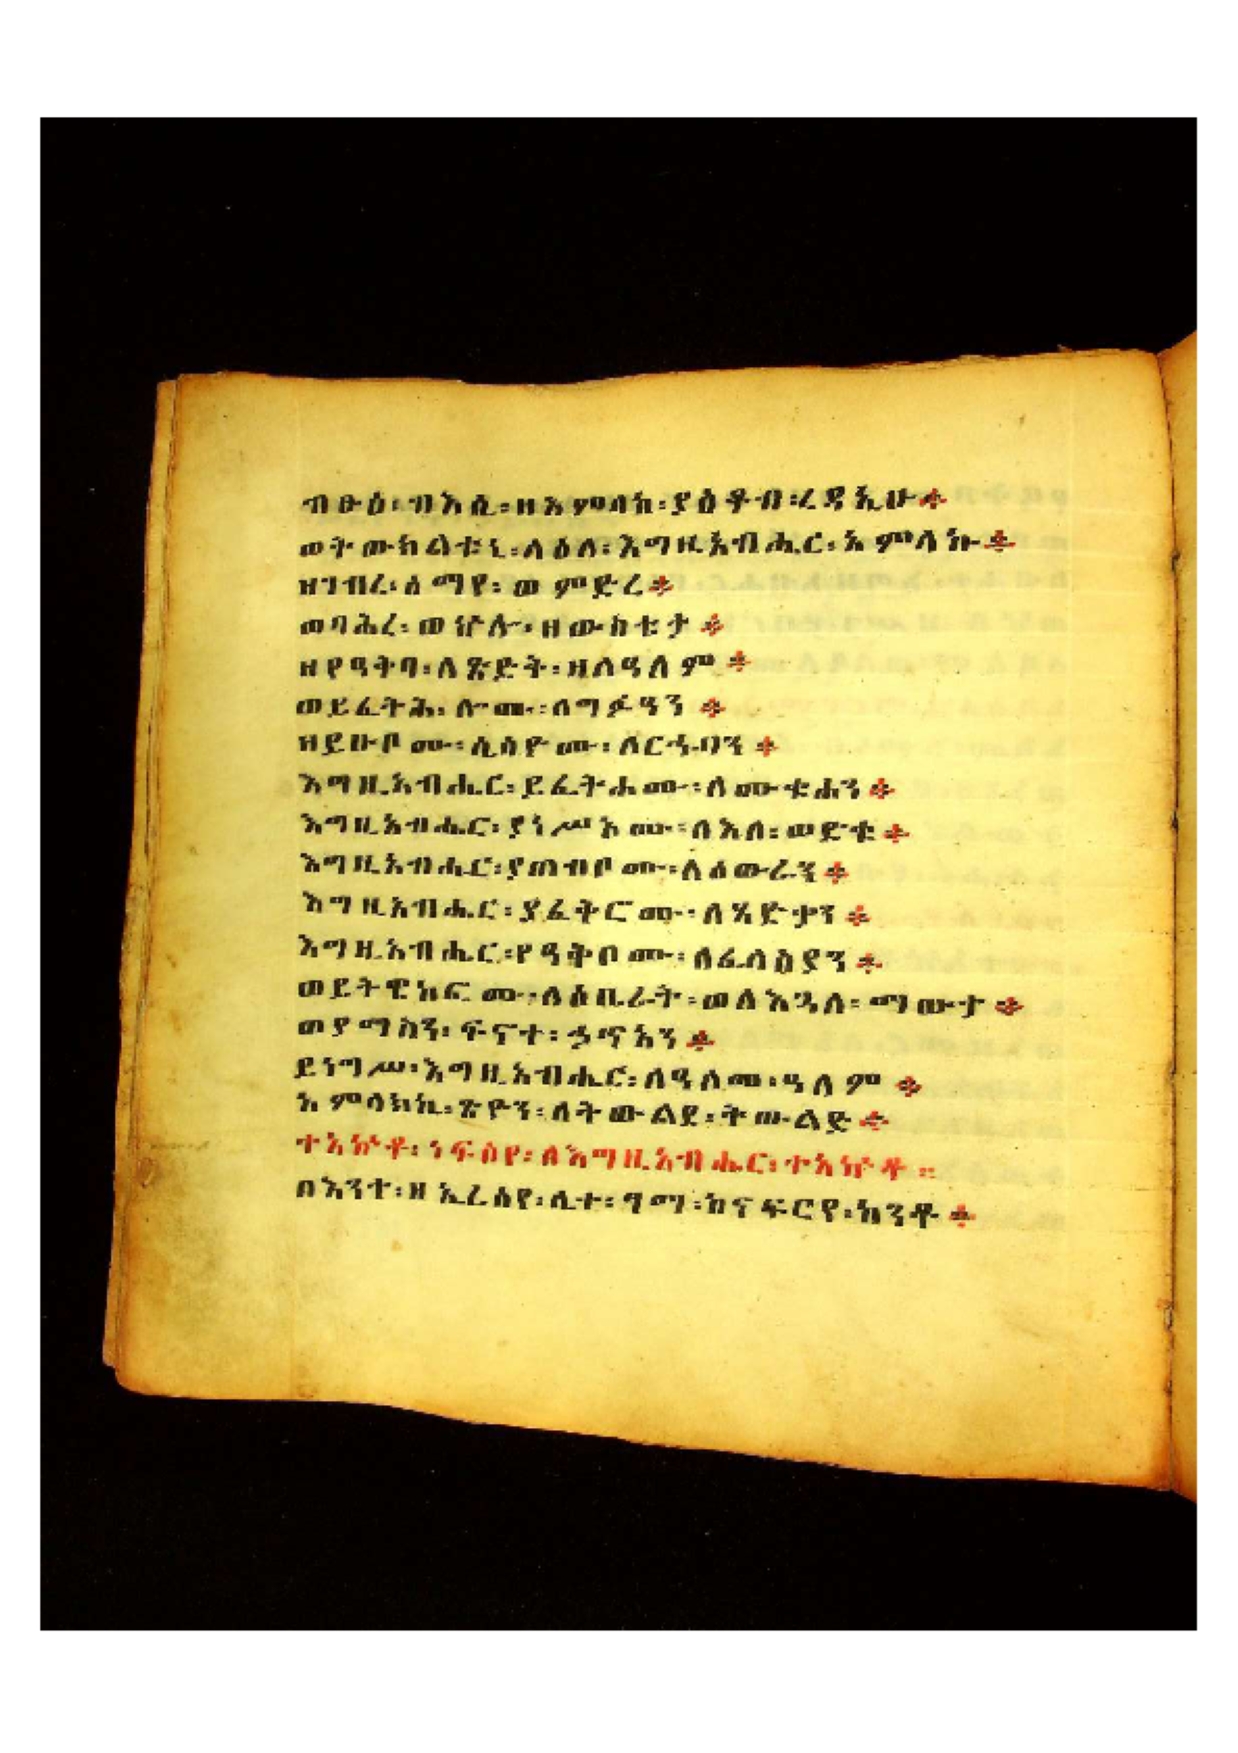 ብፁዕ፡ ብእሲ፡ ዘአምላከ፡ ያዕቆብ፡ ረዳኢሁ።
ወትውክልቱኒ፡ ላዕለ፡ እግዚአብሔር፡ አምላኩ።
ዘገብረ፡ ሰማየ፡ ወምድረ።
ወባሕረ፡ ወኵሉ፡ ዘውስቴታ።
ዘየዓቅባ፡ ለጽድት፡ ዘለዓለም።
ወይፈትሕ፡ ሎሙ፡ ለግፉዓን።
ዘይሁቦሙ፡ ሲሳዮሙ፡ ለርኁባን።
እግዚአብሔር፡ ይፈትሖሙ፡ ለሙቁሐን።
እግዚአብሔር፡ ያነሥኦሙ፡ ለእለ፡ ወድቁ።
እግዚአብሔር፡ ያጠብቦሙ፡ ለዕውራን።
እግዚአብሔር፡ ያፈቅሮሙ፡ ለጻድቃን።
እግዚአብሔር፡ የዓቅቦሙ፡ ለፈላስያን።
ወይትዌከፎሙ፡ ለዕቤራት፡ ወለእጓለ፡ ማውታ።
ወያማስን፡ ፍናተ፡ ኃጥአን።
ይነግሥ፡ እግዚአብሔር፡ ለዓለመ፡ ዓለም።
አምላክኪ፡ ጽዮን፡ ለትውልደ፡ ትውልድ።
ተአኵቶ፡ ነፍስየ፡ ለእግዚአብሔር፡ ተአኵቶ።
በእንተ፡ ዘኢረሰየ፡ ሊተ፡ ግማ፡ ከናፍርየ፡ ከንቶ።